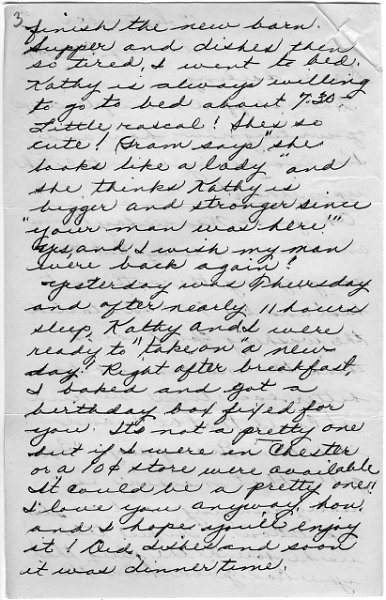 3
finish the new barn.
Supper and dishes then
so tired, I went to bed.
Kathy is always willing
to go to bed about 7:30.
Little rascal! She's so
cute! Gram says "she
looks like a lady" and
she thinks Kathy is
bigger and stronger since
"your man was here"."
Yes, and I wish my man
were back again!
Yesterday was Thursday
and after nearly 11 hours
sleep, Kathy and I were
ready to "take on" a new
day! Right after breakfast,
I baked and got a
birthday box fixed for
you. It's not a pretty one
but if I were in Chester
or a 10¢ store were available
it could be a pretty one!!
I love you anyway, hon,
and I hope you'll enjoy
it! Did dishes and soon
it was dinner time.